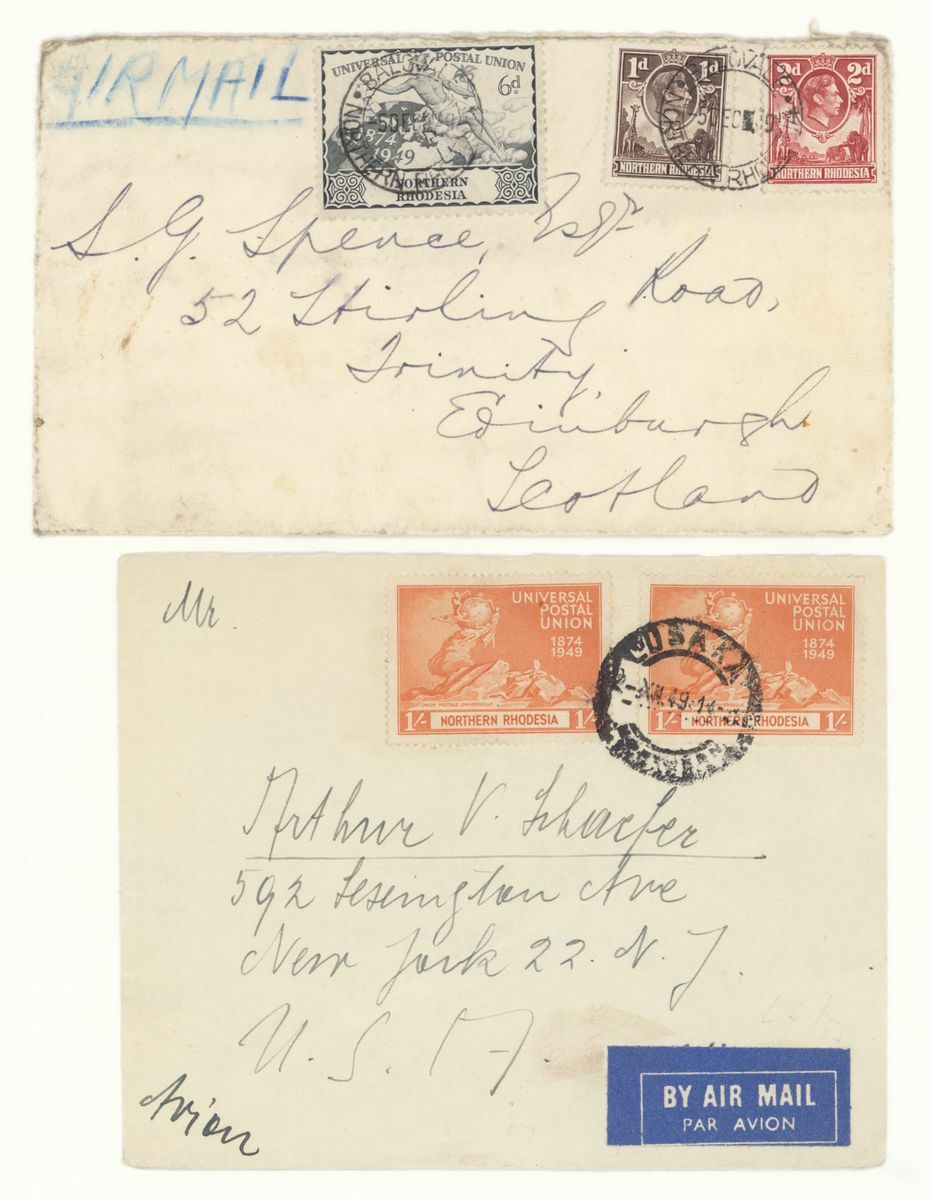 AIR MAIL
UNIVERSAL POSTAL UNION
6d
1874
1949
NORTHERN
RHODESIA
1d 1d
NORTHERN RHODESIA
2d 2d
NORTHERN RHODESIA
BALOVALE
NORTHERN RHODESIA
5 DEC
BALOVALE
NORTHERN RHODESIA
5 DEC
S. G. Spence, Esqr
52 Stirling Road,
Trinity,
Edinburgh
Scotland
Mr.
UNIVERSAL
POSTAL
UNION
1874
1949
UNION POSTALE UNIVERSELLE
1/- NORTHERN RHODESIA 1/-
UNIVERSAL
POSTAL
UNION
1874
1949
1/- NORTHERN RHODESIA 1/-
LUSAKA
XII.49.14
Arthur V. Schaefer
592 Lexington Ave
New York 22. N. Y.
U. S. A.
Avion
BY AIR MAIL
PAR AVION